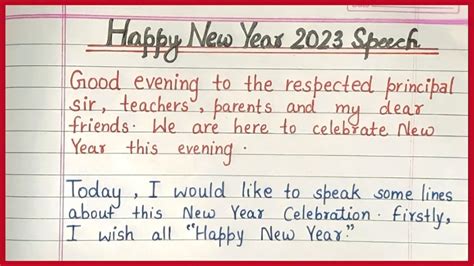 Happy New Year 2023 Speech
Good evening to the respected principal
sir, teachers, parents and my dear
friends. We are here to celebrate New
Year this evening.
Today, I would like to speak some lines
about this New Year Celebration. Firstly,
I wish all "Happy New Year."